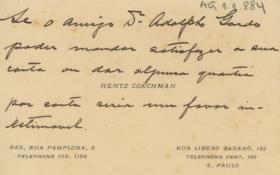 AG, 1.1.884
Se o Amigo Dr. Adolpho Gordo
poder mandar satisfazer a sua
conta ou dar alguma quantia
HENTZ COACHMAN
por conta seria um favor in-
estimavel.
RES, RUA PAMPLONA, 5
TELEPHONE CID. 1186
RUA LIBERO BADARÓ, 142
TELEPHONE CENT. 109
S. PAULO